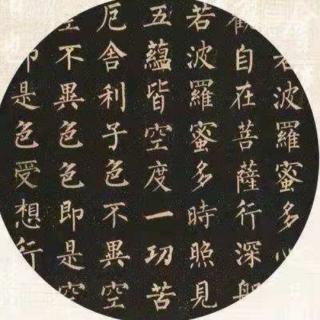 若波羅蜜多心
觀自在菩薩行深般
若波羅蜜多時照見
五蘊皆空度一切苦
厄舍利子色不異空
空不異色色即是空
即是色受想行